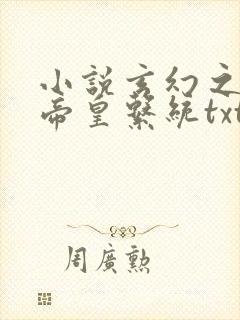 小說玄幻之
帝皇繫統txt
周廣勲